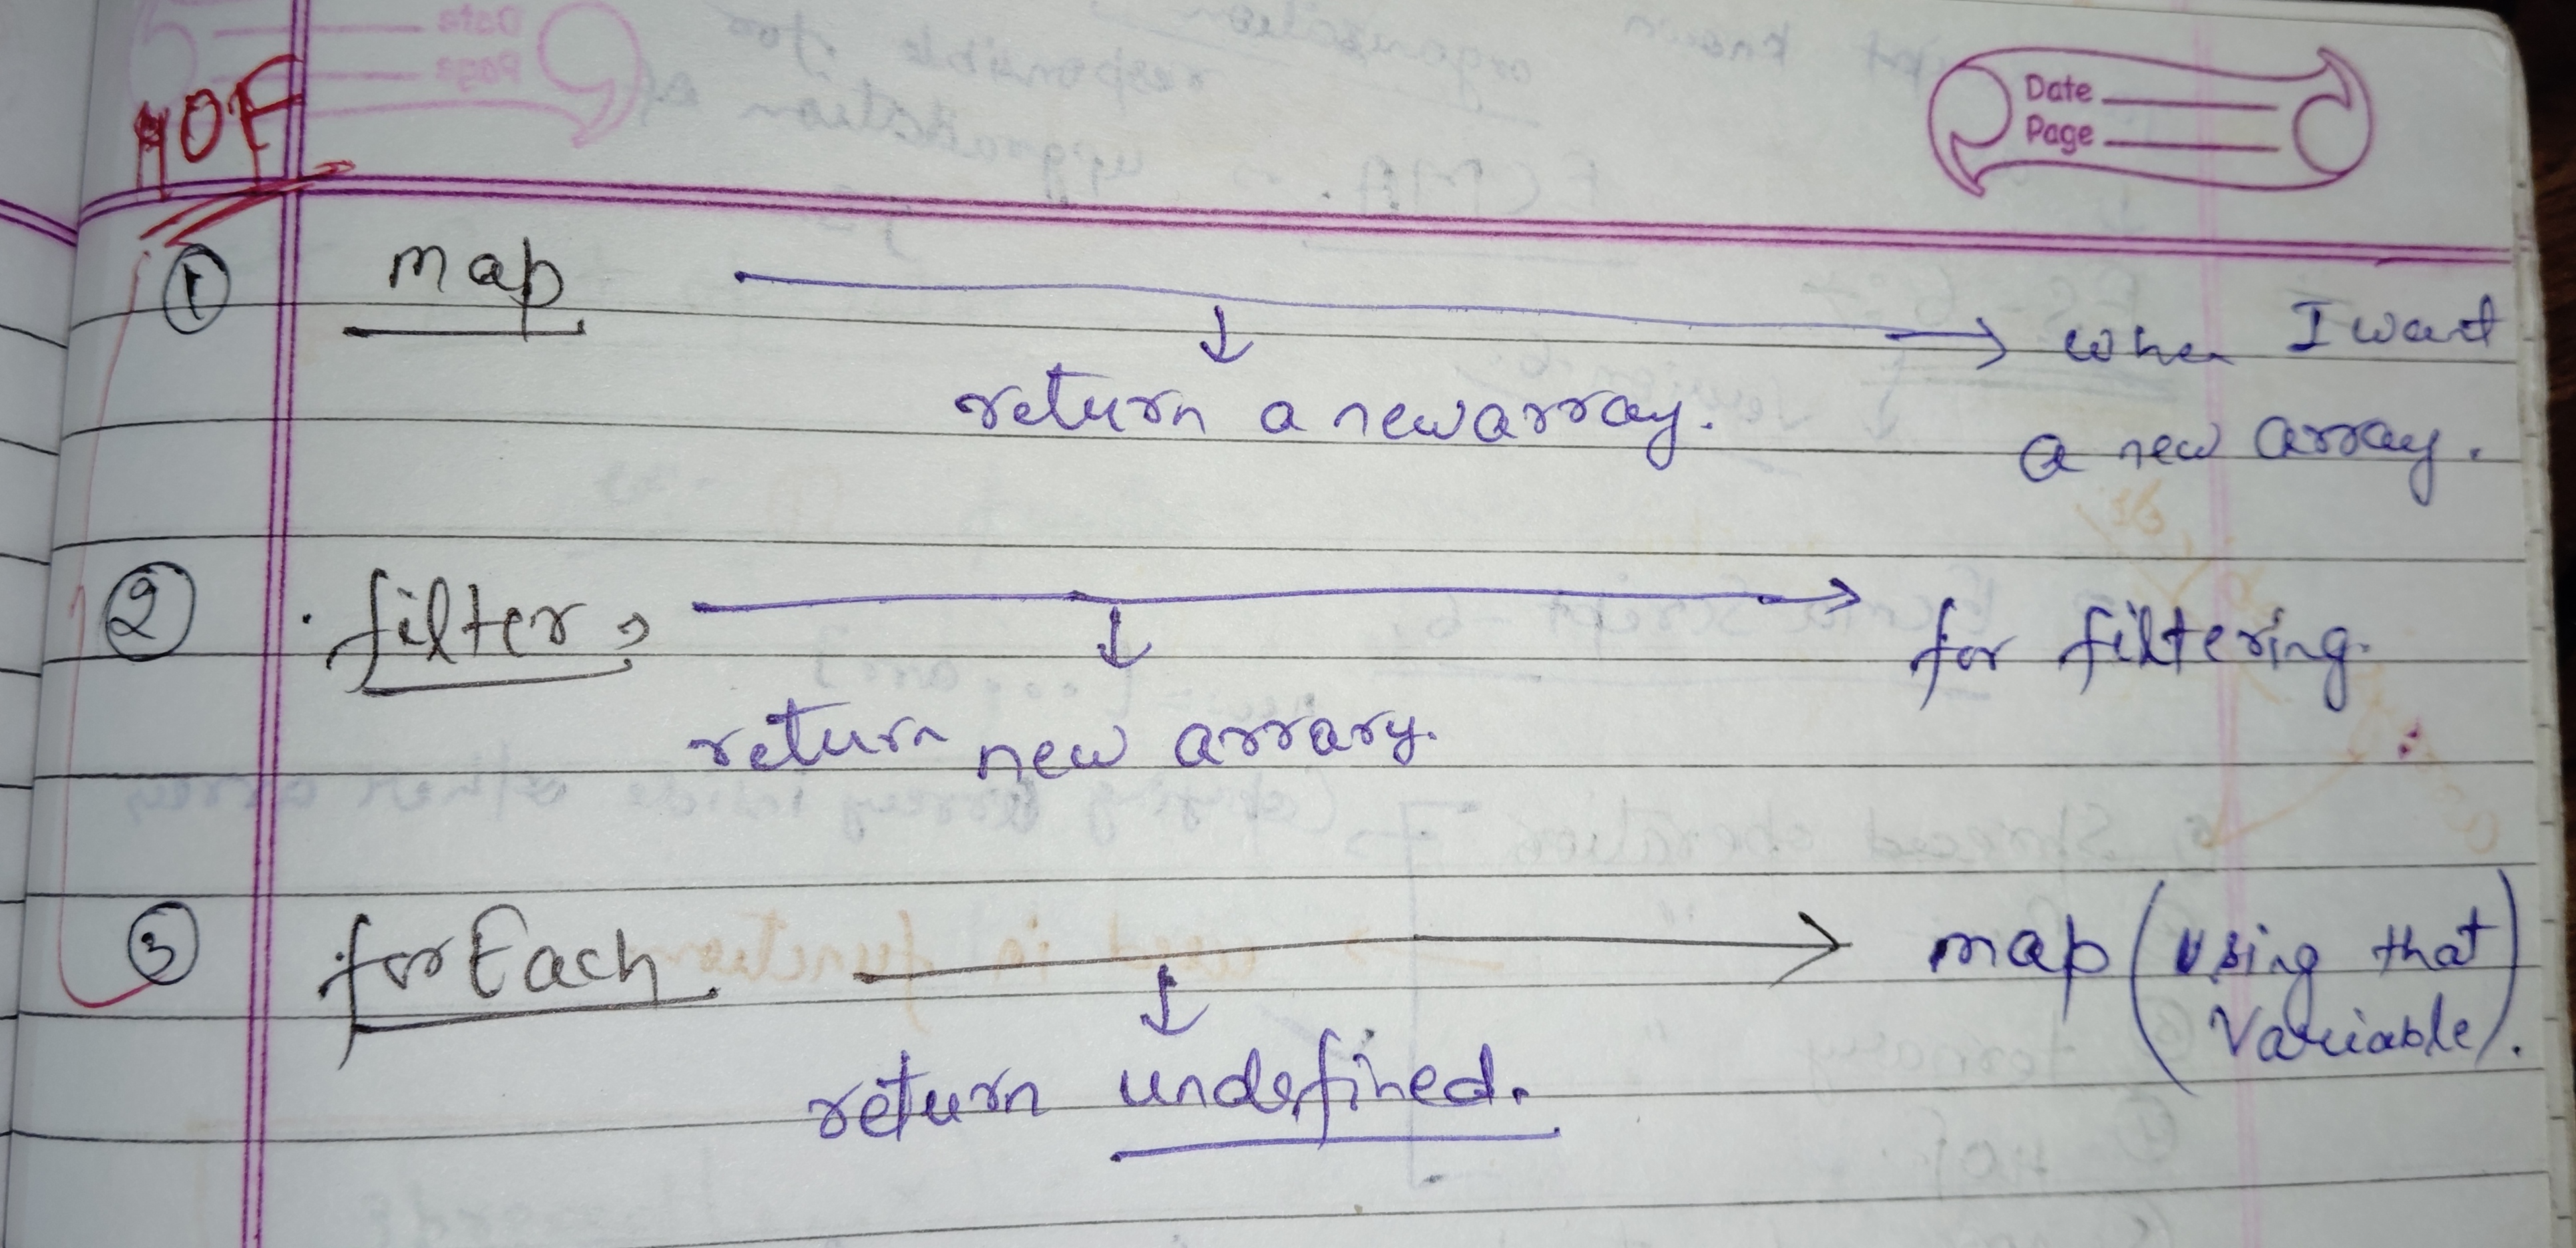 HOF
Date
Page
① map → when I want
↓
return a new array. a new array.
② . filter, → for filtering.
↓
return new arrary.
③ forEach. → map (using that
↓ Variable).
return undefined.